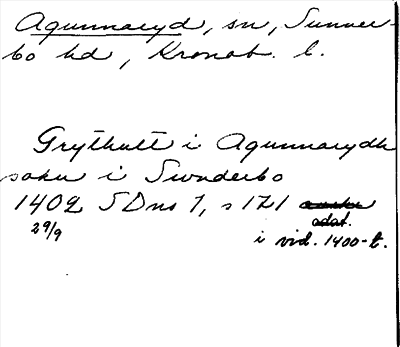 Agunnaryd, sn, Sunner-
bo hd, Kronob. l.
Grythult i Agunnarydh
sokn i Swnderbo
1402 SDns 1, s 121
29/9
odat.
i vid. 1400-t.